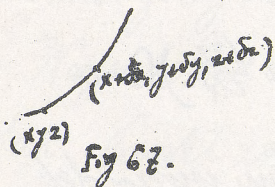 (x+δx, y+δy, z+δz)
(xyz)
Fig 67.